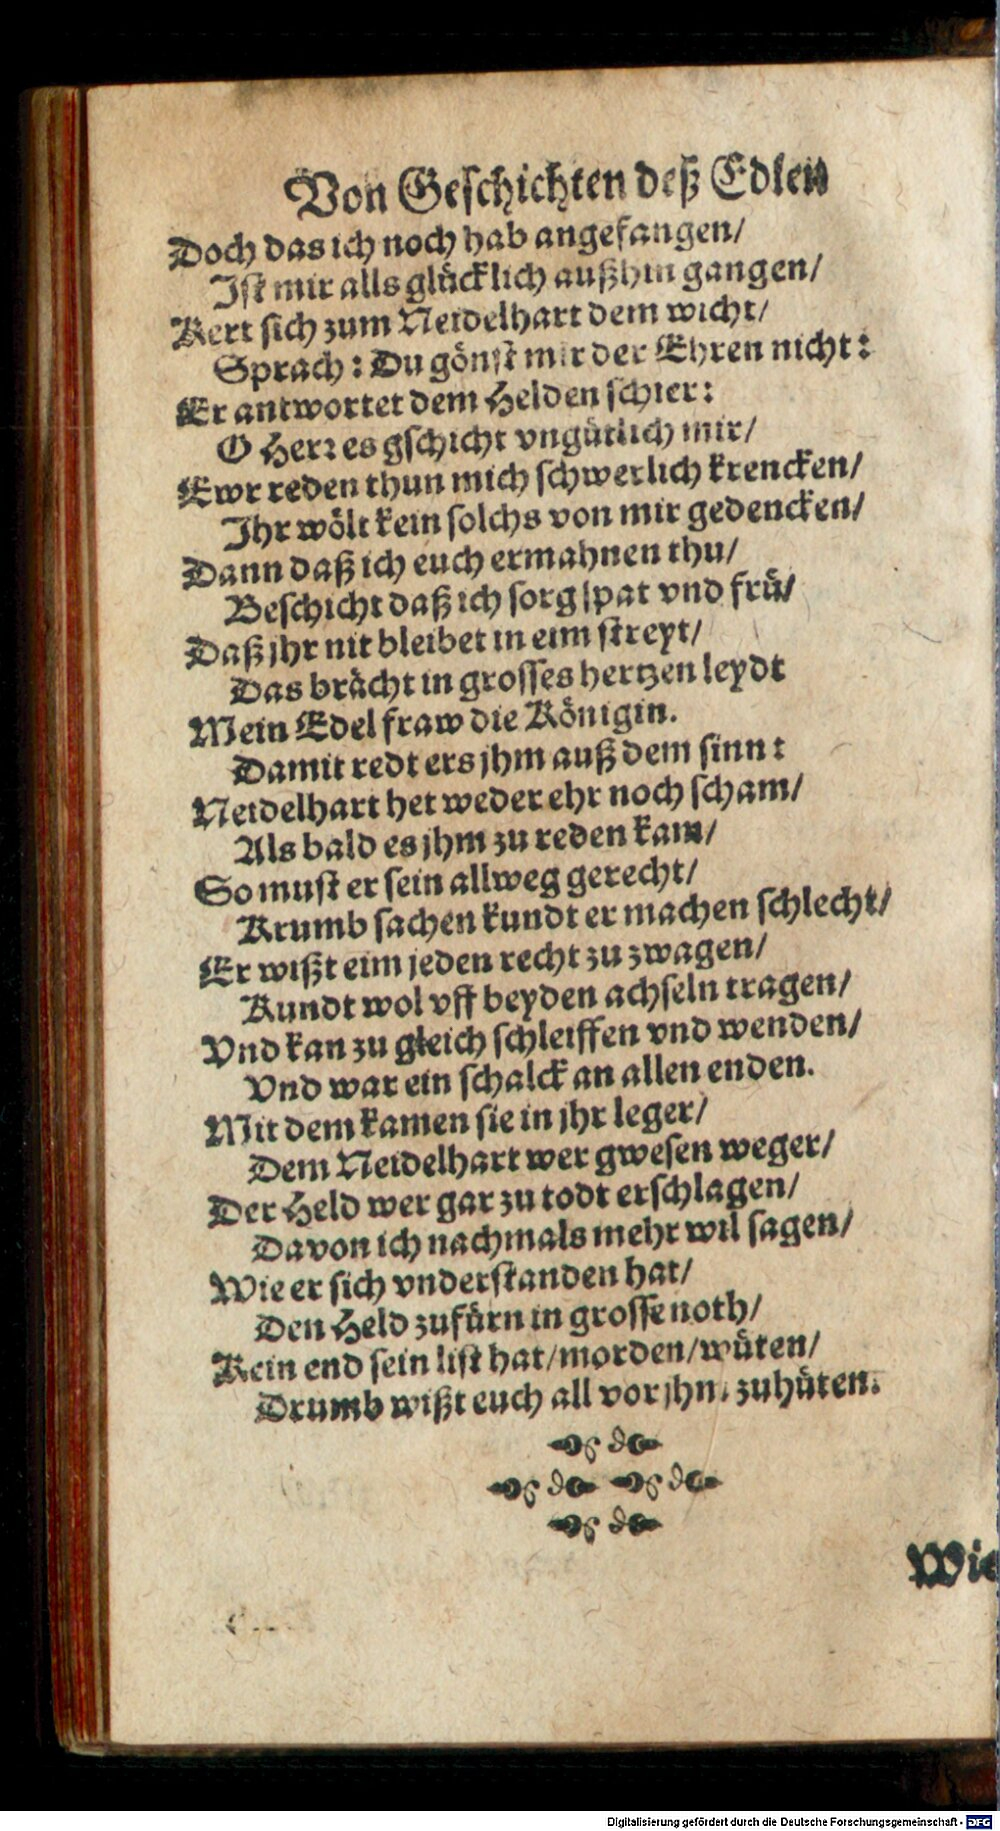 Von Geschichten deß Edlen
Doch das ich noch hab angefangen/
Ist mir alls glücklich außhin gangen/
Kert sich zum Neidelhart dem wicht/
Sprach: Du gönst mir der Ehren nicht:
Er antwortet dem Helden schier:
O Herr es gschicht vngütlich mir/
Ewr reden thun mich schwerlich krencken/
Ihr wölt kein solchs von mir gedencken/
Dann daß ich euch ermahnen thu/
Beschicht daß ich sorg spat vnd frü/
Daß jhr nit bleibet in eim streyt/
Das brächt in grosses hertzen leydt
Mein Edel fraw die Königin.
Damit redt ers jhm auß dem sinn:
Neidelhart het weder ehr noch scham/
Als bald es jhm zu reden kam/
So must er sein allweg gerecht/
Krumb sachen kundt er machen schlecht/
Er wißt eim jeden recht zu zwagen/
Kundt wol vff beyden achseln tragen/
Vnd kan zu gleich schleiffen vnd wenden/
Vnd war ein schalck an allen enden.
Mit dem kamen sie in jhr leger/
Dem Neidelhart wer gwesen weger/
Der Held wer gar zu todt erschlagen/
Davon ich nachmals mehr wil sagen/
Wie er sich vnderstanden hat/
Den Held zufürn in grosse noth/
Kein end sein list hat/morden/wüten/
Drumb wißt euch all vor jhm zuhüten.
Wie
Digitalisierung gefördert durch die Deutsche Forschungsgemeinschaft - DFG